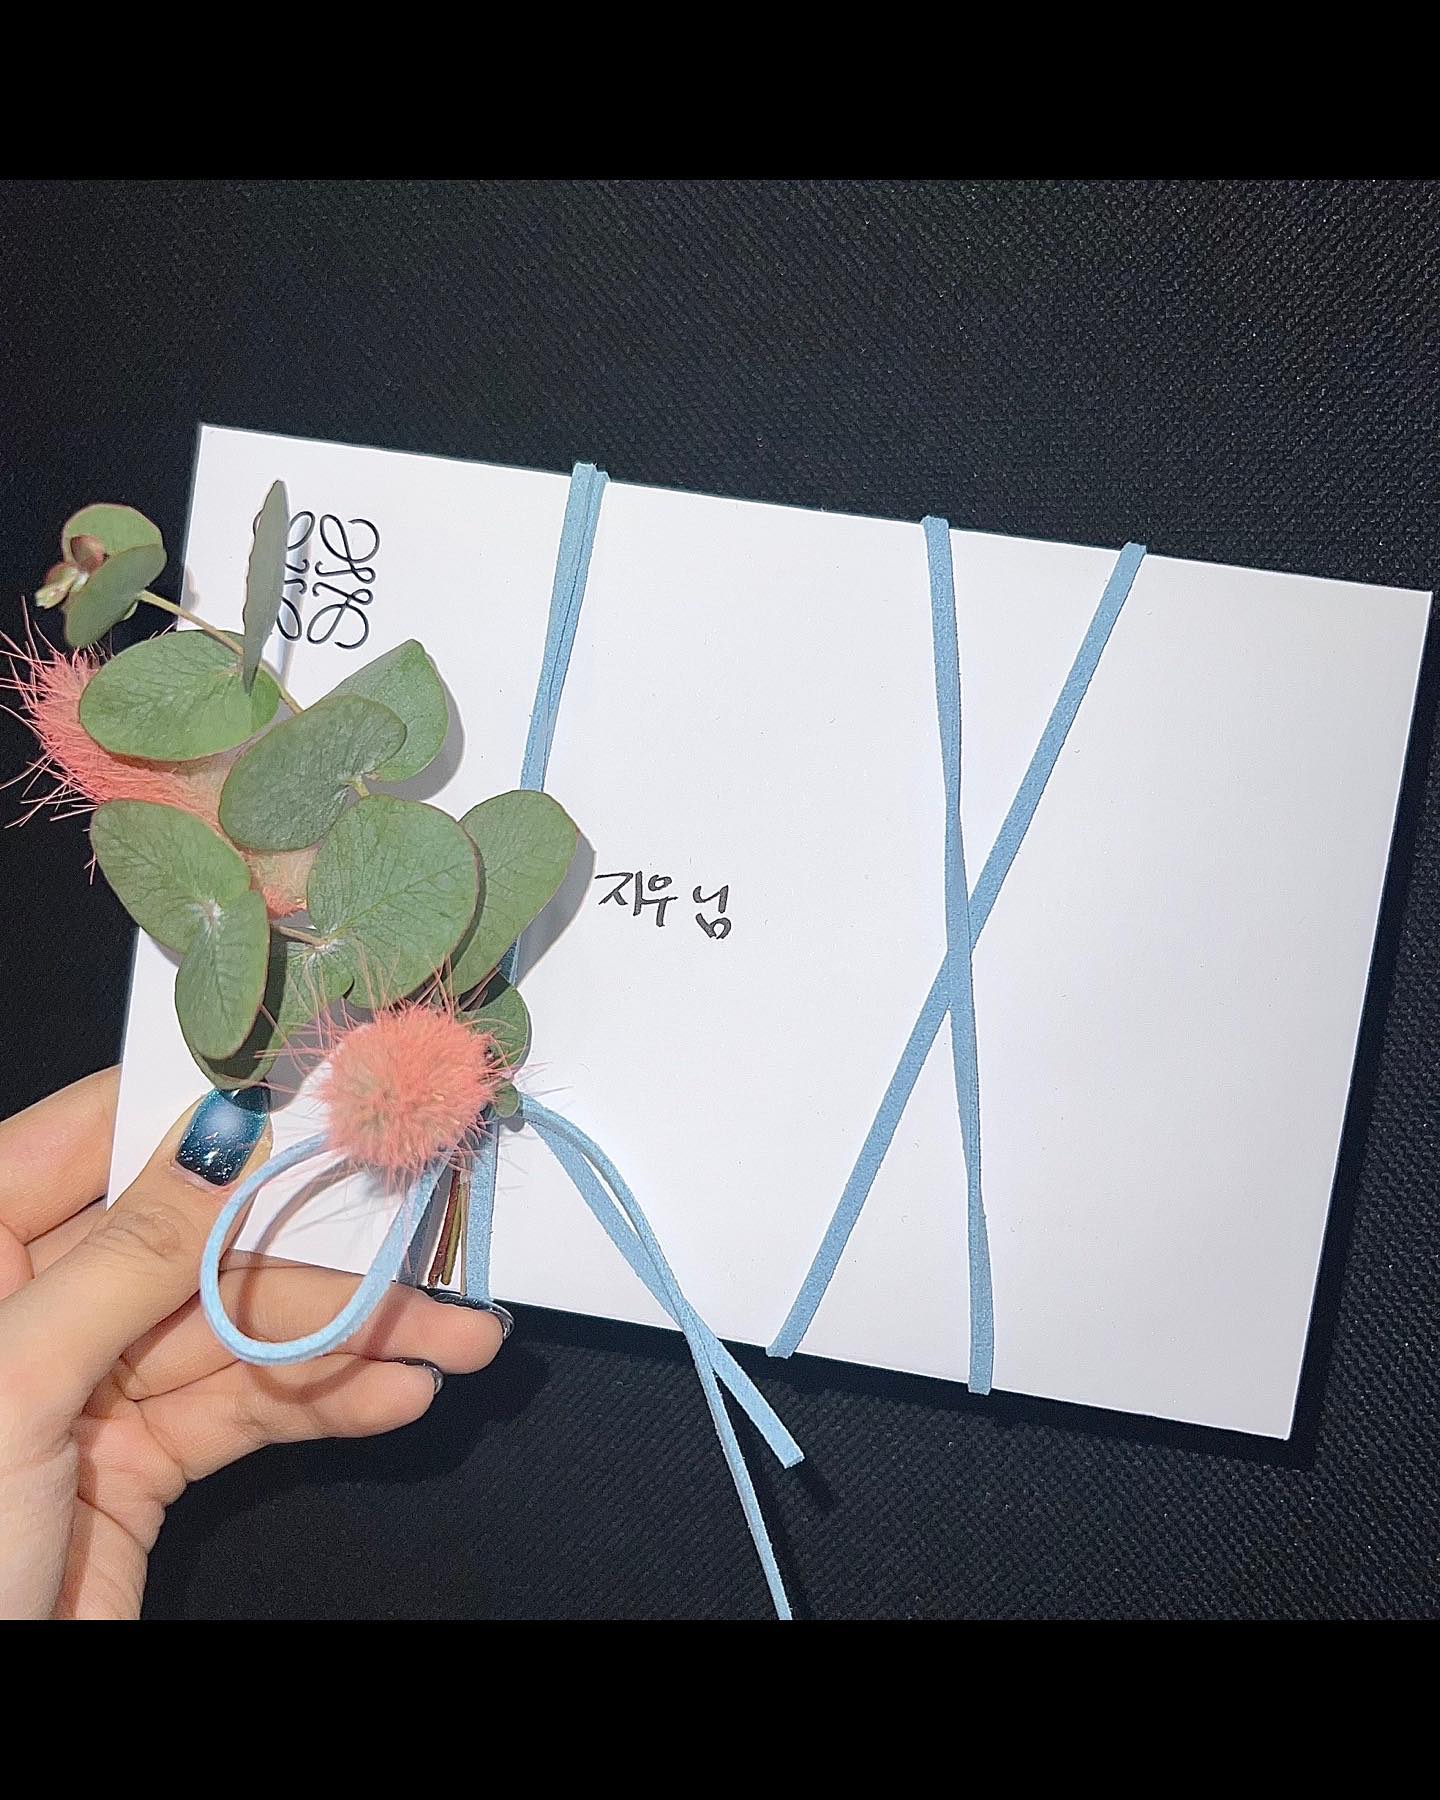 지우 님